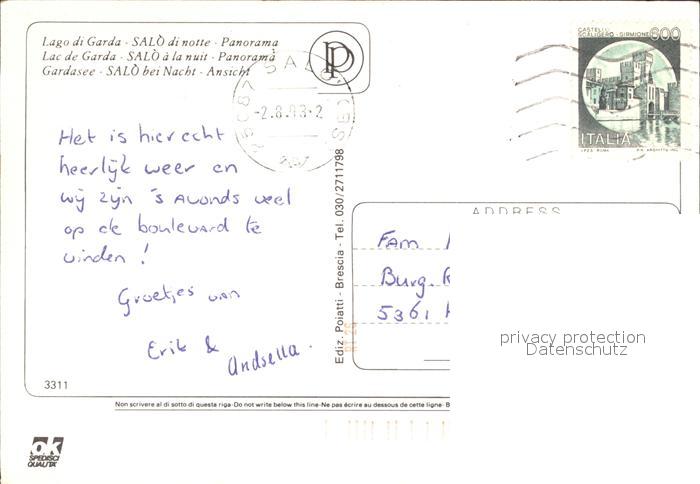 Lago di Garda - SALÒ di notte - Panorama
Lac de Garda - SALÒ à la nuit - Panorama
Gardasee - SALÒ bei Nacht - Ansicht
P
SALÒ
-2.8.93-2
CASTELLO
SCALIGERO - SIRMIONE 600
ITALIA
I.P.Z.S. ROMA
Het is hier echt
heerlijk weer en
wij zijn 's avonds veel
op de boulevard te
vinden!
Groetjes van
Erik & Andsella.
3311
Ediz. Poiatti - Brescia - Tel. 030/2711798
ADDRESS
Fam
Burg.
5361
privacy protection
Datenschutz
Non scrivere al di sotto di questa riga-Do not write below this line-Ne pas écrire au dessous de cette ligne-
ok
SPEDISCI
QUALITA'